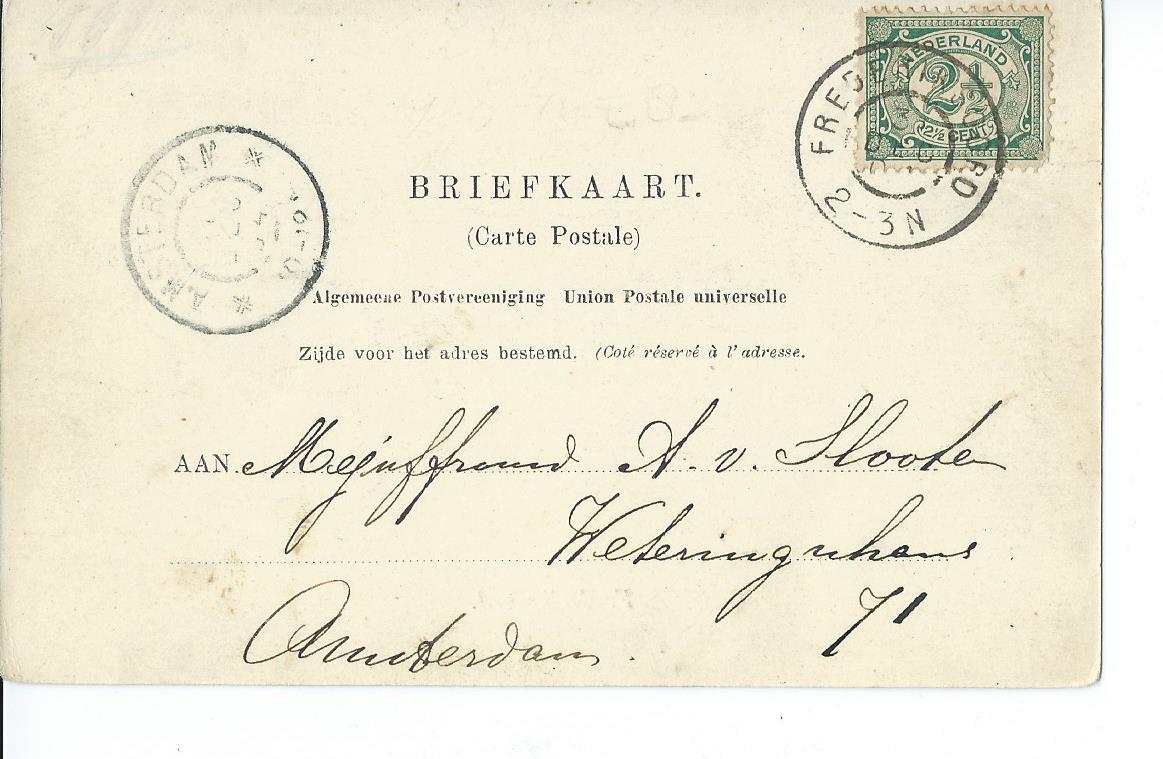 NEDERLAND
2½
2½ CENT
FREDERIKSOORD
2-3N
AMSTERDAM
BRIEFKAART.
(Carte Postale)
Algemeene Postvereeniging Union Postale universelle
Zijde voor het adres bestemd. (Coté réservé à l'adresse.
AAN Mejuffrouw A. v. Slooten
71
Amsterdam.